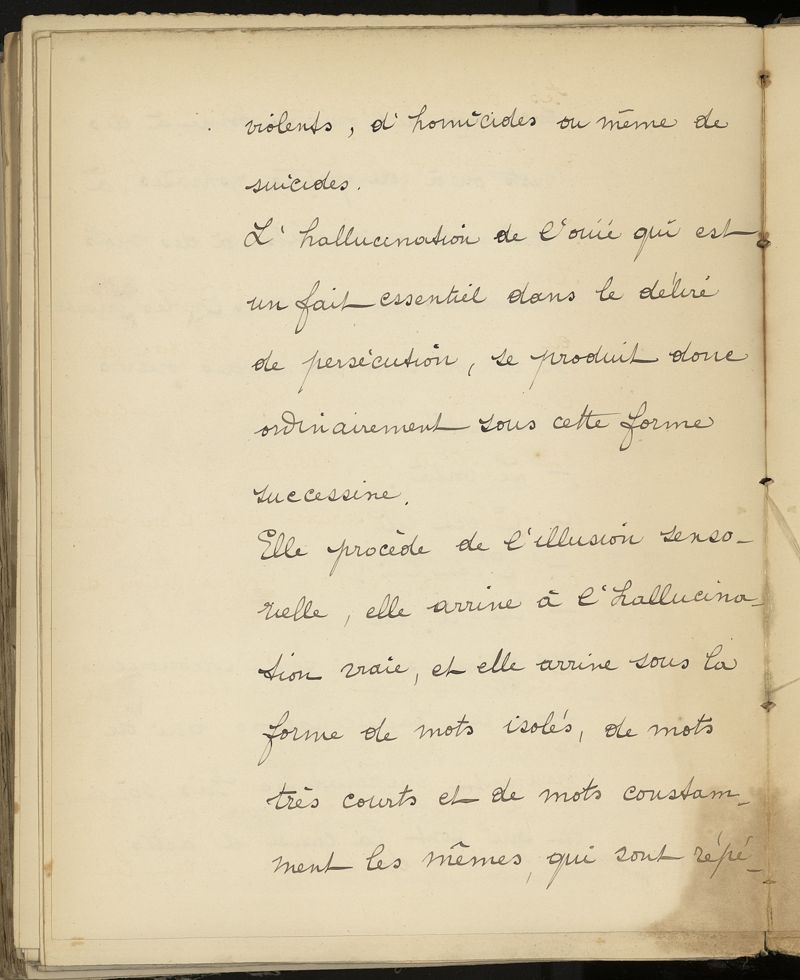 violents, d'homicides ou même de
suicides.
L'hallucination de l'ouïe qui est
un fait essentiel dans le délire
de persécution, se produit donc
ordinairement sous cette forme
successive.
Elle procède de l'illusion senso-
rielle, elle arrive à l'hallucina-
tion vraie, et elle arrive sous la
forme de mots isolés, de mots
très courts et de mots constam-
ment les mêmes, qui sont répé-